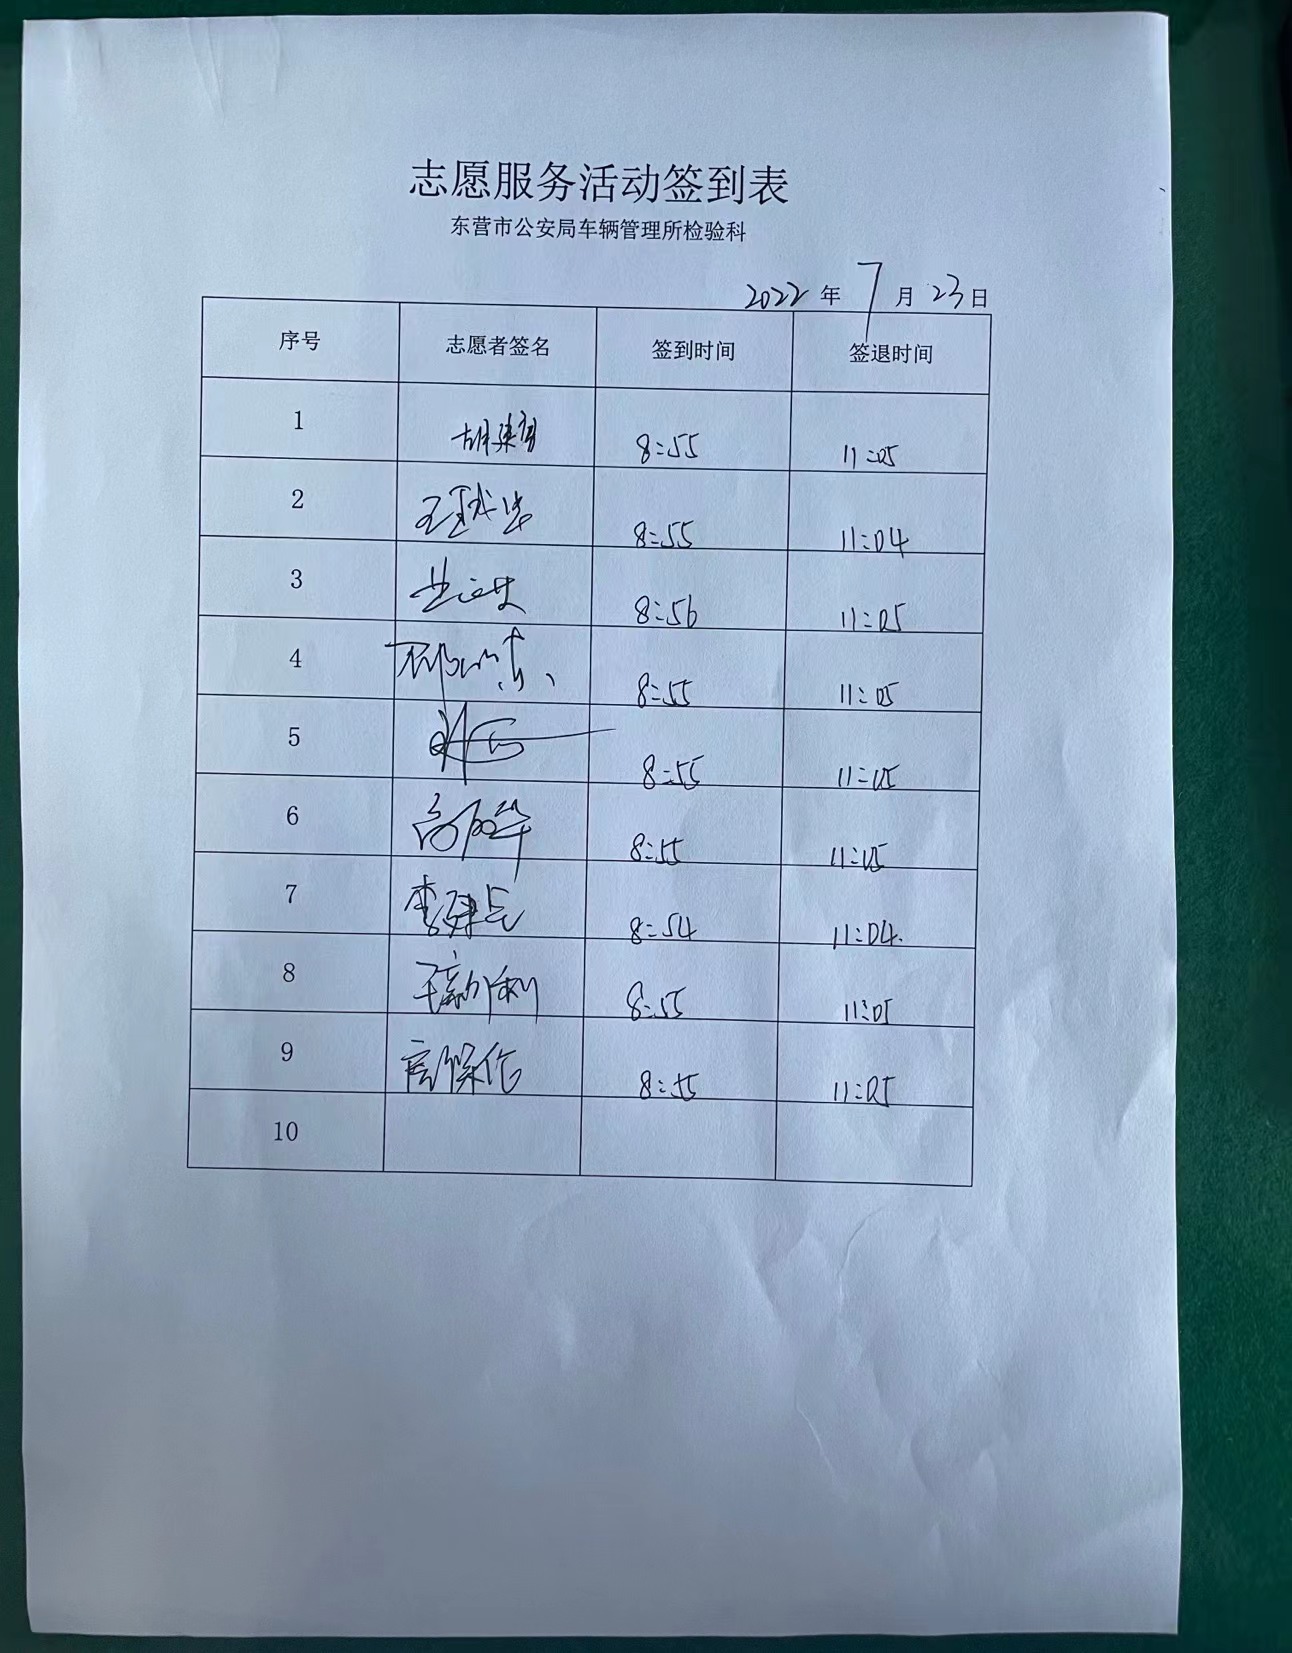 志愿服务活动签到表
东营市公安局车辆管理所检验科
2022 年 7 月 23 日
序号 志愿者签名 签到时间 签退时间
1 8:55 11:05
2 8:55 11:04
3 8:56 11:05
4 8:55 11:05
5 8:55 11:05
6 8:55 11:05
7 李建兵 8:54 11:04
8 王新利 8:55 11:05
9 8:55 11:05
10